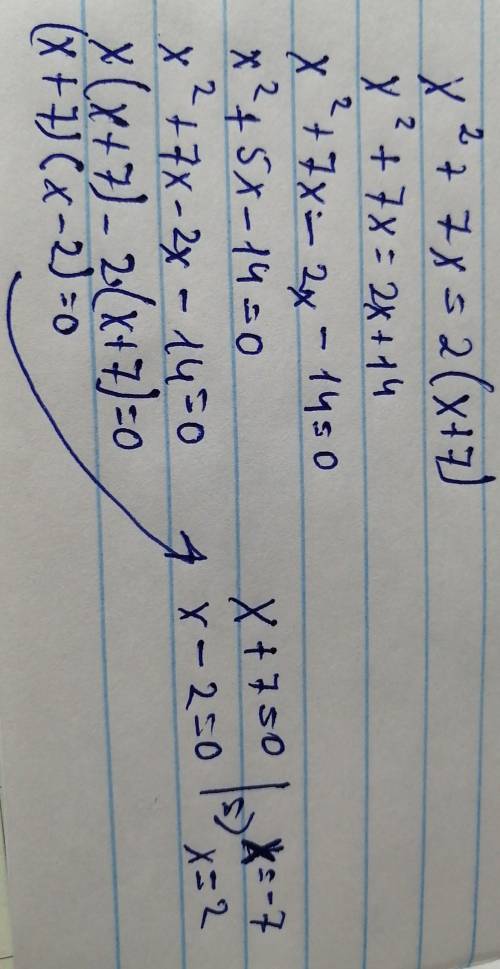 x² + 7x = 2(x+7)
x² + 7x = 2x+14
x² + 7x - 2x - 14=0
x² + 5x - 14=0
x² + 7x - 2x - 14=0
x(x+7) - 2(x+7)=0
(x+7)(x-2)=0
x+7=0 | x=-7
x-2=0 | x=2